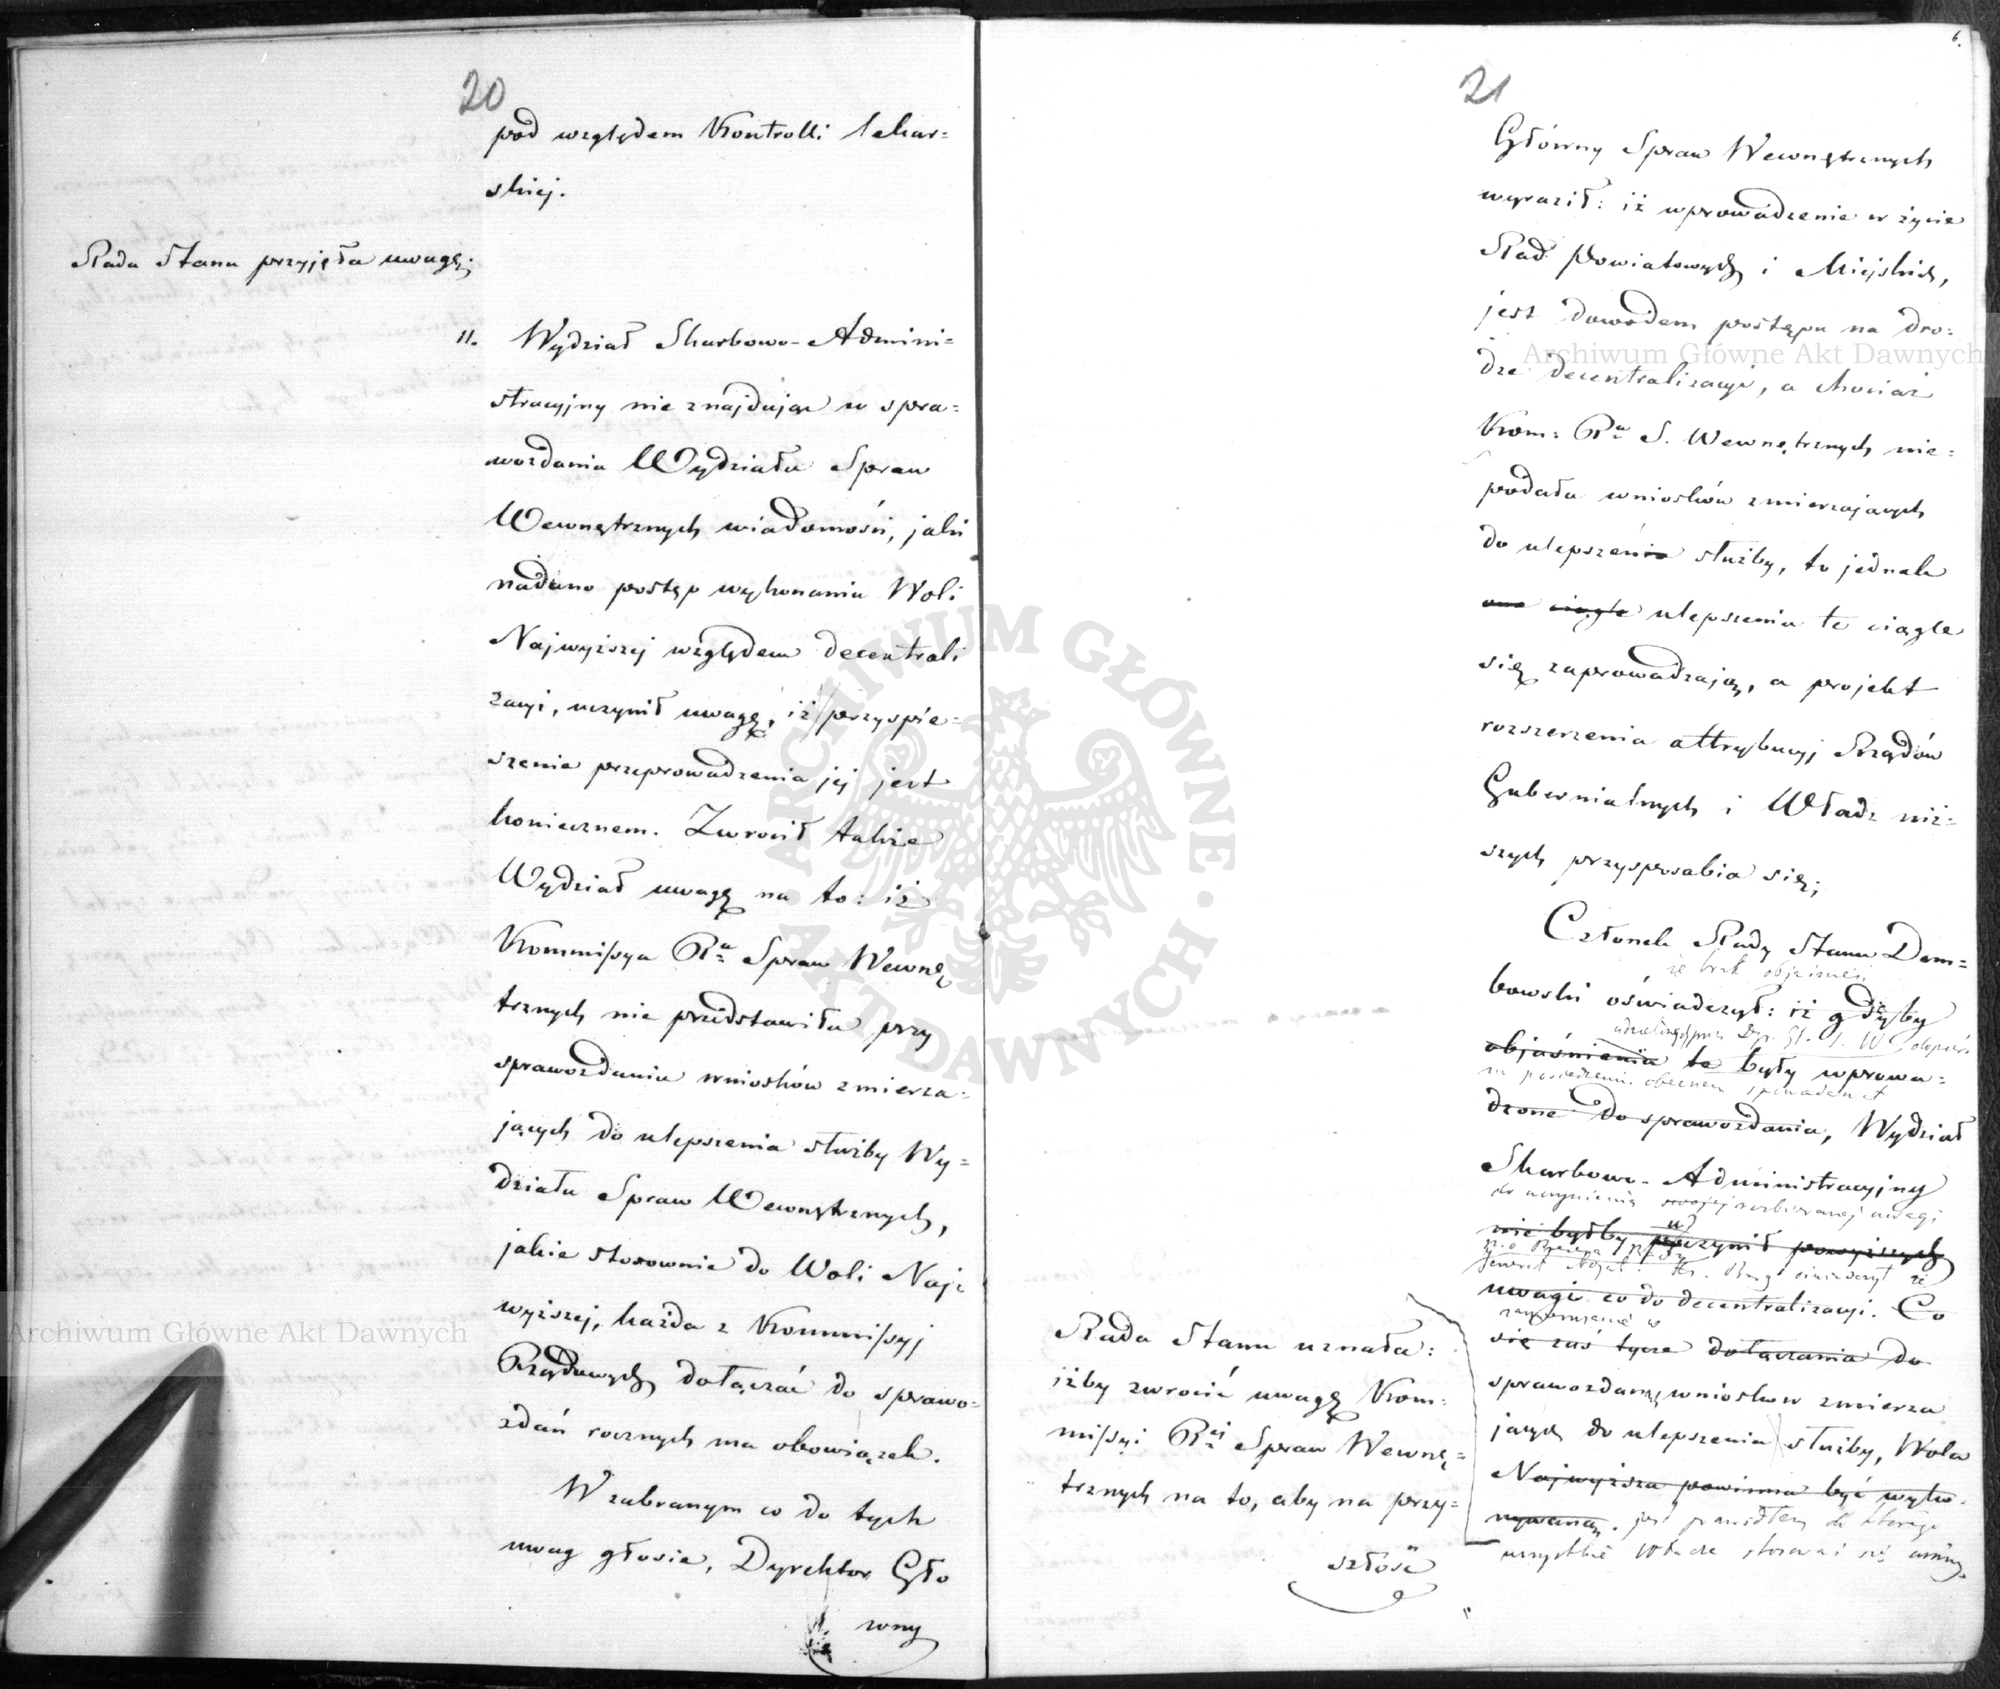 20
pod względem Kontrolli lekar=
skiej.
Rada Stanu przyjęła uwagę;
11. Wydział Skarbowo-Admini=
stracyjny nie znajdując w spra=
wozdaniu Wydziału Spraw
Wewnętrznych wiadomości, jaki
nadano postęp wykonaniu Woli
Najwyższej względem decentrali
zacyi, uczynił uwagę, iż przyspie=
szenie przeprowadzenia jej jest
koniecznem. Zwrócił także
Wydział uwagę na to: iż
Kommissya Ra Spraw Wewnę
trznych nie przedstawiła przy
sprawozdaniu wniosków zmierza=
jących do ulepszenia służby Wy=
działu Spraw Wewnętrznych,
jakie stosownie do Woli Naj=
wyższej, każda z Kommissyj
Rządowych dołączać do sprawo=
zdań rocznych ma obowiązek.
W zabranym co do tych
uwag głosie, Dyrektor Głó
wny
21
6.
Główny Spraw Wewnętrznych
wyraził: iż wprowadzenie w życie
Rad Powiatowych i Miejskich,
jest dowodem postępu na dro=
dze decentralizacyi, a chociaż
Kom: Ra S. Wewnętrznych nie=
podała wniosków zmierzających
do ulepszenia służby, to jednak
one ciągle ulepszenia te ciągle
się zaprowadzają, a projekt
rozszerzenia attrybucyj Rządów
Gubernialnych i Władz niż=
szych przysposabia się;
Członek Rady Stanu Dem=
że brak objaśnień
bowski oświadczył: iż gdyby
udzielonych przez Dyr. Gł. S. W. dopiero
objaśnienia te były wprowa=
na posiedzeniu obecnem spowodował
dzone do sprawozdania, Wydział
Skarbowo-Administracyjny
do uczynienia swojej rozbieranej uwagi
nie byłby uczynił powyższych
że
uwagi co do decentralizacyi. Co
zamieszczenie w
się zaś tycze dołączania do
sprawozdaniu wniosków zmierza
jących do ulepszenia służby, Wola
Najwyższa powinna być wyko=
nywaną. jest prawidłem do którego
wszystkie Władze stosować się winny.
Rada Stanu uznała:
iżby zwrócić uwagę Kom=
missyi Rej Spraw Wewnę=
trznych na to, aby na przy=
szłość
Archiwum Główne Akt Dawnych
Archiwum Główne Akt Dawnych
ARCHIWUM GŁÓWNE · AKT DAWNYCH ·